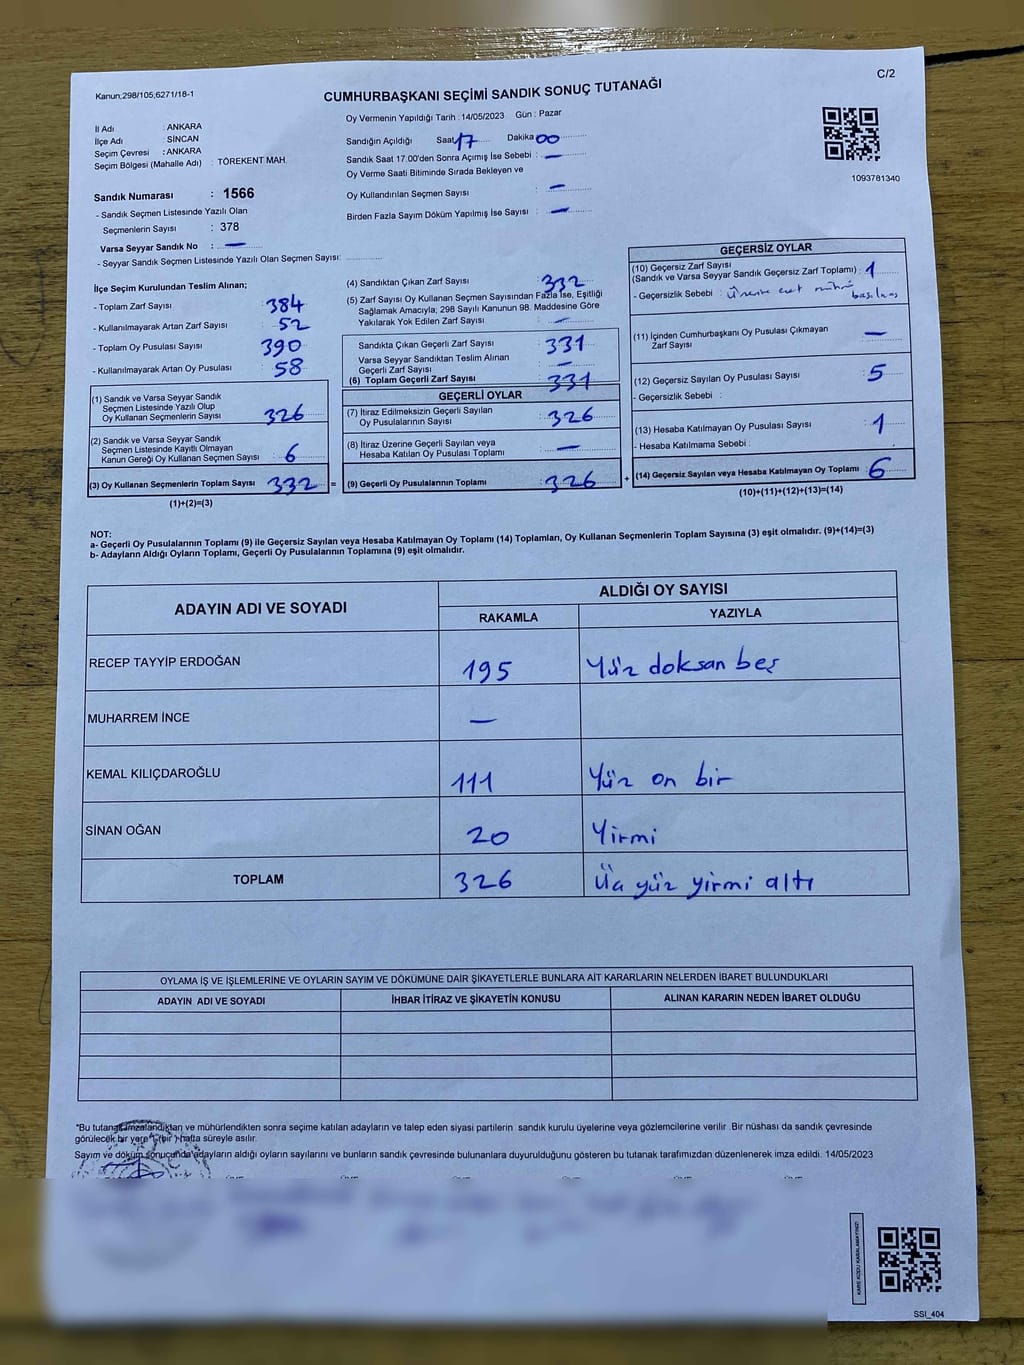 C/2
Kanun,298/105;6271/18-1
CUMHURBAŞKANI SEÇİMİ SANDIK SONUÇ TUTANAĞI
İl Adı : ANKARA
İlçe Adı : SİNCAN
Seçim Çevresi : ANKARA
Seçim Bölgesi (Mahalle Adı) : TÖREKENT MAH.
Sandık Numarası : 1566
- Sandık Seçmen Listesinde Yazılı Olan
Seçmenlerin Sayısı : 378
Varsa Seyyar Sandık No : —
- Seyyar Sandık Seçmen Listesinde Yazılı Olan Seçmen Sayısı:
Oy Vermenin Yapıldığı Tarih : 14/05/2023 Gün : Pazar
Sandığın Açıldığı Saat 17 Dakika 00
Sandık Saat 17.00'den Sonra Açımış İse Sebebi : —
Oy Verme Saati Bitiminde Sırada Bekleyen ve
Oy Kullandırılan Seçmen Sayısı : —
Birden Fazla Sayım Döküm Yapılmış İse Sayısı : —
1093781340
İlçe Seçim Kurulundan Teslim Alınan;
- Toplam Zarf Sayısı : 384
- Kullanılmayarak Artan Zarf Sayısı : 52
- Toplam Oy Pusulası Sayısı : 390
- Kullanılmayarak Artan Oy Pusulası : 58
(1) Sandık ve Varsa Seyyar Sandık
Seçmen Listesinde Yazılı Olup
Oy Kullanan Seçmenlerin Sayısı : 326
(2) Sandık ve Varsa Seyyar Sandık
Seçmen Listesinde Kayıtlı Olmayan
Kanun Gereği Oy Kullanan Seçmen Sayısı : 6
(3) Oy Kullanan Seçmenlerin Toplam Sayısı : 332 =
(1)+(2)=(3)
(4) Sandıktan Çıkan Zarf Sayısı : 332
(5) Zarf Sayısı Oy Kullanan Seçmen Sayısından Fazla İse, Eşitliği
Sağlamak Amacıyla; 298 Sayılı Kanunun 98. Maddesine Göre
Yakılarak Yok Edilen Zarf Sayısı : —
Sandıkta Çıkan Geçerli Zarf Sayısı : 331
Varsa Seyyar Sandıktan Teslim Alınan
Geçerli Zarf Sayısı : —
(6) Toplam Geçerli Zarf Sayısı : 331
GEÇERLİ OYLAR
(7) İtiraz Edilmeksizin Geçerli Sayılan
Oy Pusulalarının Sayısı : 326
(8) İtiraz Üzerine Geçerli Sayılan veya
Hesaba Katılan Oy Pusulası Toplamı : —
(9) Geçerli Oy Pusulalarının Toplamı : 326 +
GEÇERSİZ OYLAR
(10) Geçersiz Zarf Sayısı
(Sandık ve Varsa Seyyar Sandık Geçersiz Zarf Toplamı) : 1
- Geçersizlik Sebebi : Üzerine evet mührü
basılmış
(11) İçinden Cumhurbaşkanı Oy Pusulası Çıkmayan
Zarf Sayısı : —
(12) Geçersiz Sayılan Oy Pusulası Sayısı : 5
- Geçersizlik Sebebi :
(13) Hesaba Katılmayan Oy Pusulası Sayısı : 1
- Hesaba Katılmama Sebebi :
(14) Geçersiz Sayılan veya Hesaba Katılmayan Oy Toplamı : 6
(10)+(11)+(12)+(13)=(14)
NOT:
a- Geçerli Oy Pusulalarının Toplamı (9) ile Geçersiz Sayılan veya Hesaba Katılmayan Oy Toplamı (14) Toplamları, Oy Kullanan Seçmenlerin Toplam Sayısına (3) eşit olmalıdır. (9)+(14)=(3)
b- Adayların Aldığı Oyların Toplamı, Geçerli Oy Pusulalarının Toplamına (9) eşit olmalıdır.
ADAYIN ADI VE SOYADI ALDIĞI OY SAYISI
RAKAMLA YAZIYLA
RECEP TAYYİP ERDOĞAN 195 Yüz doksan beş
MUHARREM İNCE —
KEMAL KILIÇDAROĞLU 111 Yüz on bir
SİNAN OĞAN 20 Yirmi
TOPLAM 326 Üç yüz yirmi altı
OYLAMA İŞ VE İŞLEMLERİNE VE OYLARIN SAYIM VE DÖKÜMÜNE DAİR ŞİKAYETLERLE BUNLARA AİT KARARLARIN NELERDEN İBARET BULUNDUKLARI
ADAYIN ADI VE SOYADI İHBAR İTİRAZ VE ŞİKAYETİN KONUSU ALINAN KARARIN NEDEN İBARET OLDUĞU
"Bu tutanak imzalandıktan ve mühürlendikten sonra seçime katılan adayların ve talep eden siyasi partilerin sandık kurulu üyelerine veya gözlemcilerine verilir. Bir nüshası da sandık çevresinde
görülecek bir yere 1 (bir) hafta süreyle asılır.
Sayım ve döküm sonucunda adayların aldığı oyların sayılarını ve bunların sandık çevresinde bulunanlara duyurulduğunu gösteren bu tutanak tarafımızdan düzenlenerek imza edildi. 14/05/2023
KARE KODU KARALAMAYINIZ!
SSI_404